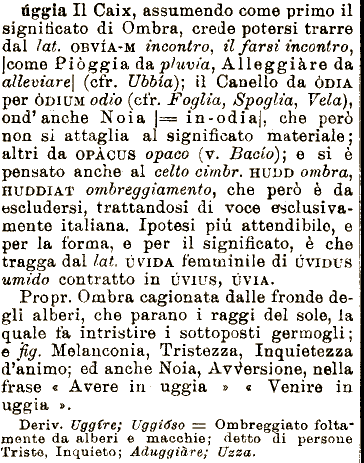 úggia Il Caix, assumendo come primo il
significato di Ombra, crede potersi trarre
dal lat. OBVÍA-M incontro, il farsi incontro,
|come Piòggia da pluvia, Alleggiàre da
alleviare| (cfr. Ubbía); il Canello da ÒDIA
per ÒDIUM odio (cfr. Foglia, Spoglia, Vela),
ond' anche Noia |= in-odia|, che però
non si attaglia al significato materiale;
altri da OPÀCUS opaco (v. Bacío); e si è
pensato anche al celto cimbr. HUDD ombra,
HUDDIAT ombreggiamento, che però è da
escludersi, trattandosi di voce esclusiva-
mente italiana. Ipotesi piú attendibile, e
per la forma, e per il significato, è che
tragga dal lat. ÚVIDA femminile di ÚVIDUS
umido contratto in ÚVIUS, ÚVIA.
Propr. Ombra cagionata dalle fronde de-
gli alberi, che parano i raggi del sole, la
quale fa intristire i sottoposti germogli;
e fig. Melanconia, Tristezza, Inquietezza
d'animo; ed anche Noia, Avversione, nella
frase « Avere in uggia » « Venire in
uggia ».
Deriv. Uggíre; Uggióso = Ombreggiato folta-
mente da alberi e macchie; detto di persone
Triste, Inquieto; Aduggiàre; Uzza.